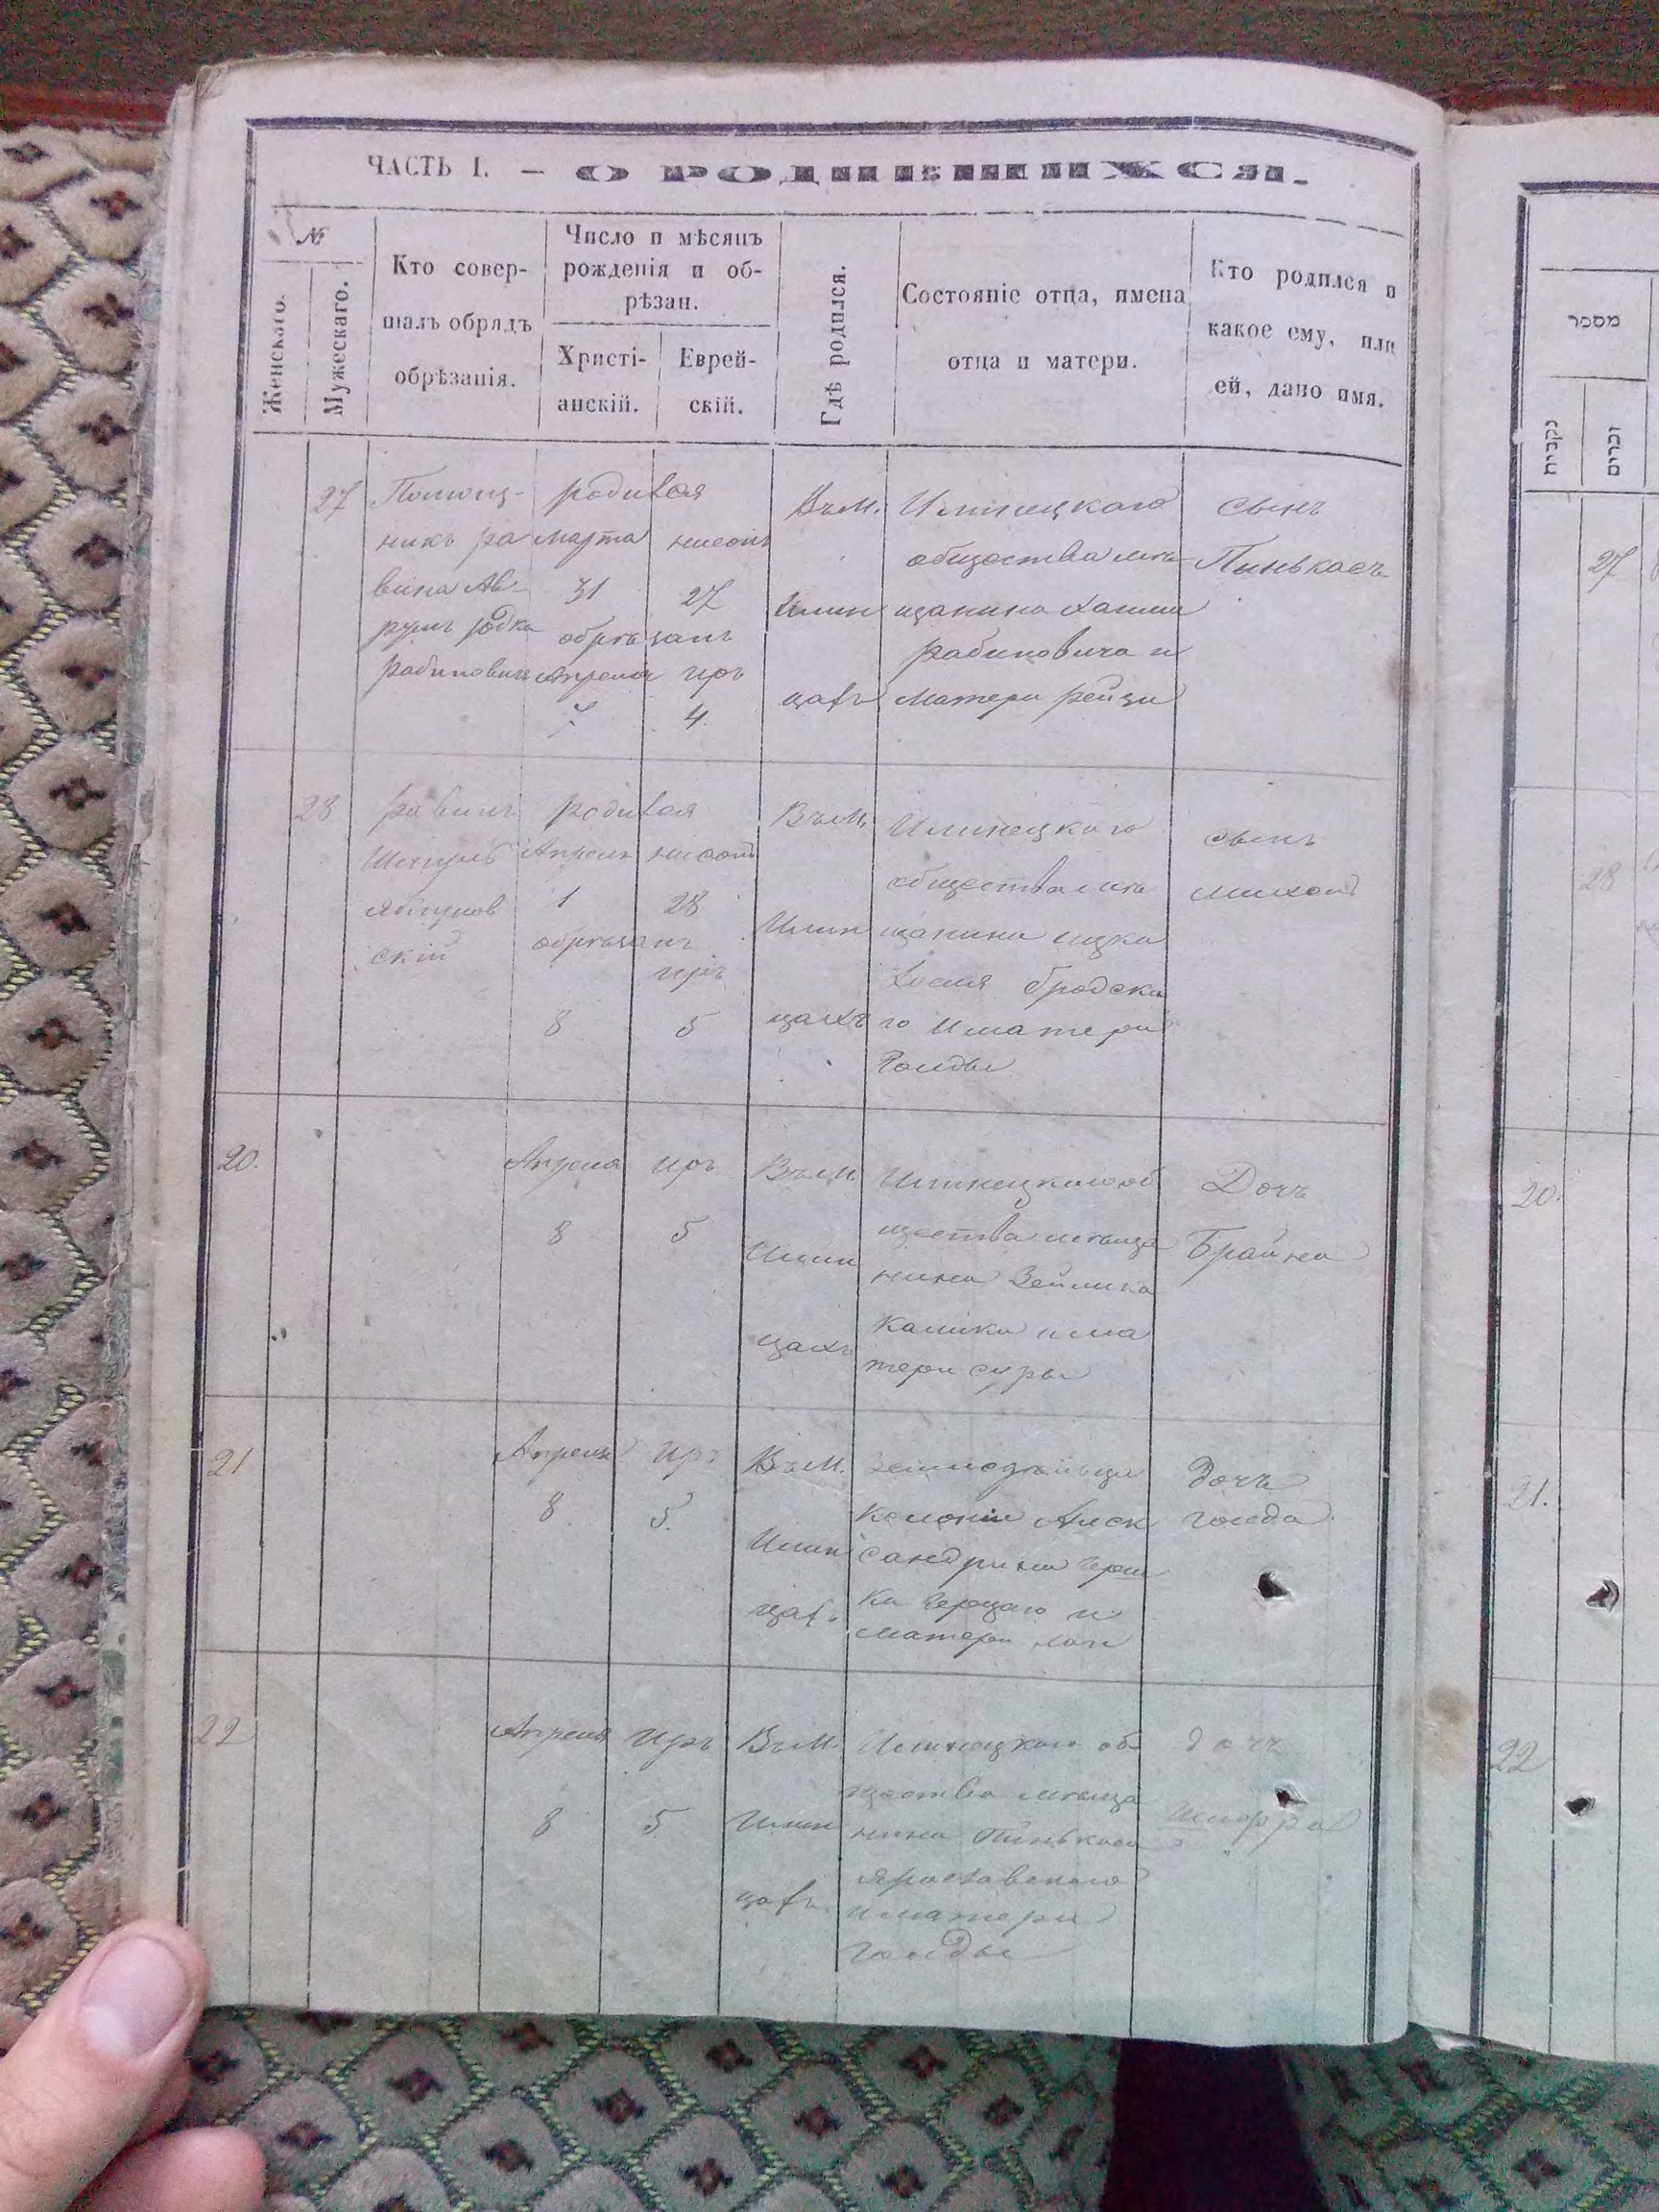 ЧАСТЬ I. — О РОДИВШИХСЯ.
№
Женскаго.
Мужескаго.
Кто совер-
шалъ обрядъ
обрѣзанія.
Число и мѣсяцъ
рожденія и об-
рѣзан.
Христі-
анскій.
Еврей-
скій.
Гдѣ родился.
Состояніе отца, имена
отца и матери.
Кто родился и
какое ему, или
ей, дано имя.
27
Помощ-
никъ ра
вина Ав-
румъ
Рабинович
родился
марта
31 27
обрѣзанъ
Апреля иръ
7 4.
Въ М.
Илин
цахъ
Илинецкаго
общества мѣ-
щанина Хаима
Рабиновича и
матери Рейзи
сынъ
Пинькасъ
28
равинъ
скій
родился
Апреля
1 28
обрѣзанъ
иръ
8 5
Въ М.
Илин
цахъ
Илинецкаго
общества мѣ
щанина Ицка
Бродска
го и матери
Голды
сынъ
20.
Апреля иръ
8 5
Въ М.
Илин
цахъ
Илинецкаго об
щества мѣща
нина Зейлика
и ма
тери Суры
Дочъ
Брайна
21
Апреля иръ
8 5.
Въ М.
Илин
цахъ
колоніи Алек
сандрина
матери
дочъ
голда
22
Апреля иръ
8 5
Въ М.
Илин
цахъ
Илинецкаго об-
щества мѣща
нина Пинькаса
Ярославскаго
и матери
голды
дочъ
מספר
נקבות
זכרים
27
28
20.
21.
22